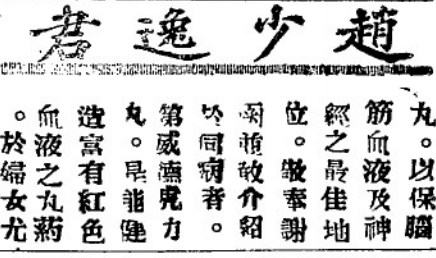 趙少逸君
丸。以保腦
筋血液及神
經之最佳地
位。敬奉謝
函並敬介紹
於同病者。
第威濂虎力
丸。是能健
造富有紅色
血液之丸藥
。於婦女尤